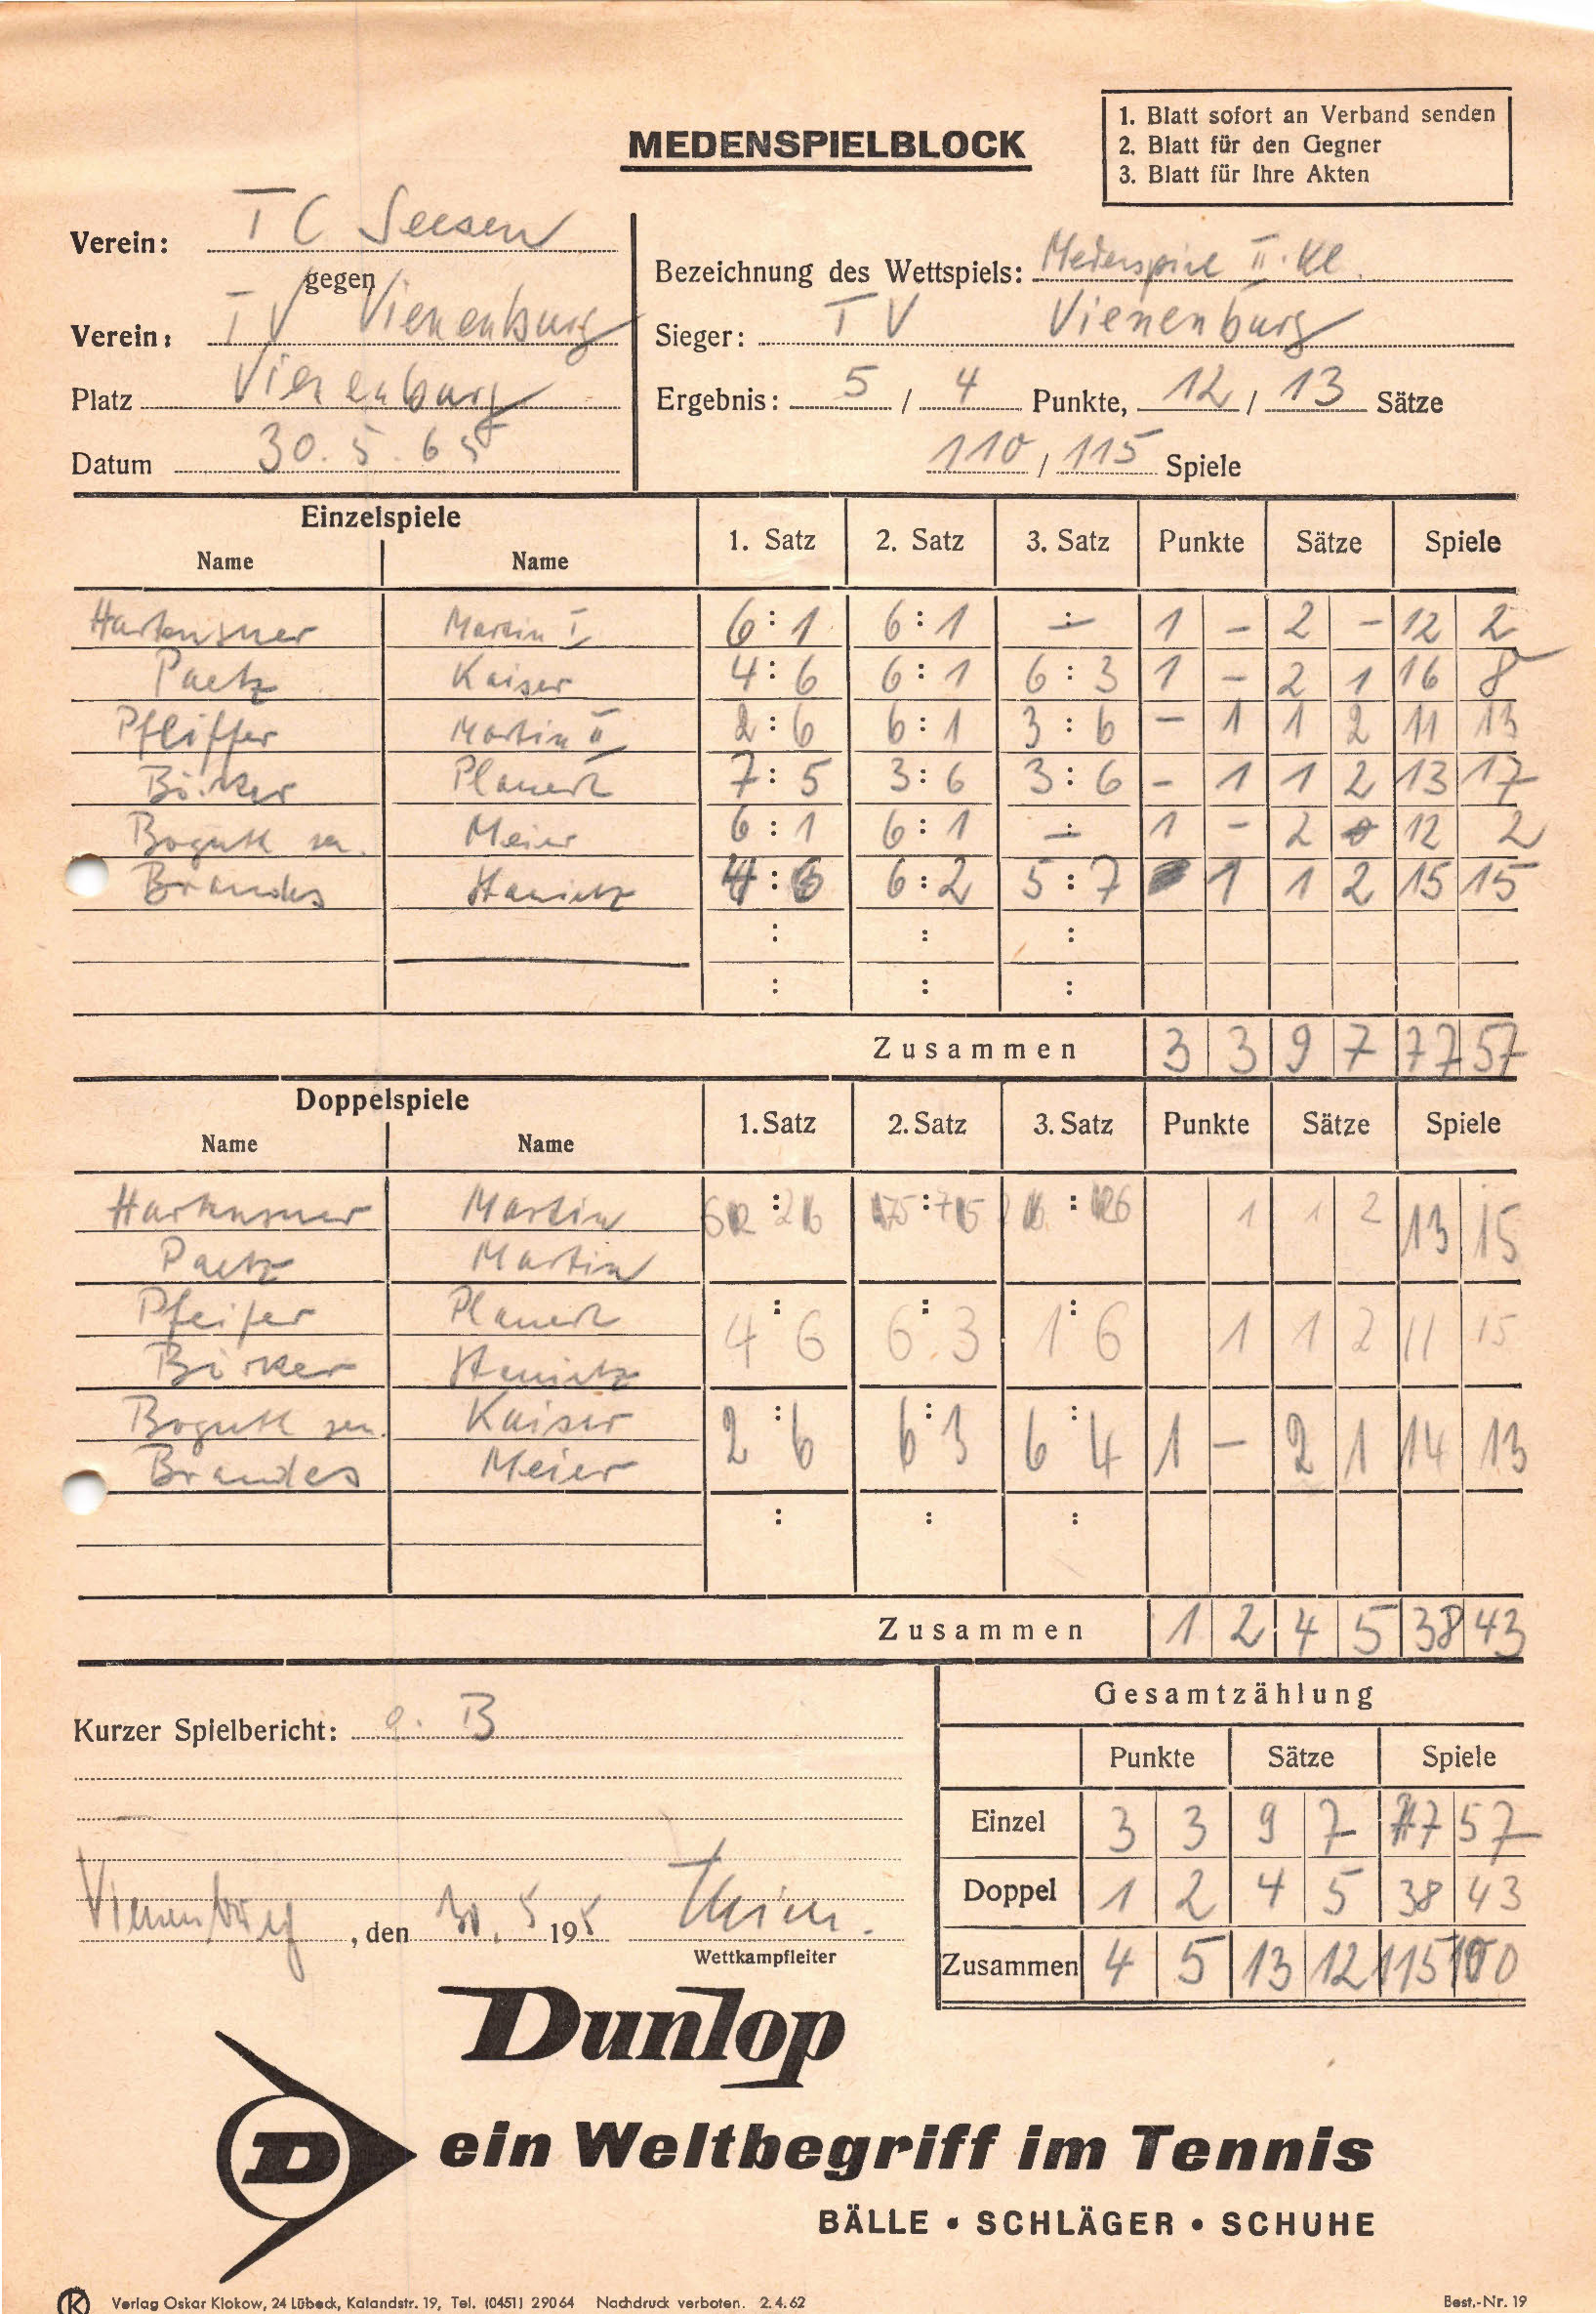 MEDENSPIELBLOCK
1. Blatt sofort an Verband senden
2. Blatt für den Gegner
3. Blatt für Ihre Akten
Verein: TC Seesen
gegen
Verein: TV Vienenburg
Platz Vienenburg
Datum 30.5.65
Bezeichnung des Wettspiels: Medenspiel II. Kl.
Sieger: TV Vienenburg
Ergebnis: 5 / 4 Punkte, 12 / 13 Sätze
110 / 115 Spiele
Einzelspiele
Name Name 1. Satz 2. Satz 3. Satz Punkte Sätze Spiele
Martin I 6:1 6:1 - 1 - 2 - 12 2
Paetz Kaiser 4:6 6:1 6:3 1 - 2 1 16 8
Pfeiffer Martin II 2:6 6:1 3:6 - 1 1 2 11 13
Börker Planert 7:5 3:6 3:6 - 1 1 2 13 17
Bogutt sen. Meier 6:1 6:1 - 1 - 2 0 12 2
Brandes 4:6 6:2 5:7 1 1 2 15 15
: : :
: : :
Zusammen 3 3 9 7 77 57
Doppelspiele
Name Name 1. Satz 2. Satz 3. Satz Punkte Sätze Spiele
Martin 1 1 2 13 15
Paetz Martin
Pfeifer Planert 4:6 6:3 1:6 1 1 2 11 15
Börker
Bogutt sen. Kaiser 2:6 6:3 6:4 1 - 2 1 14 13
Brandes Meier
: : :
Zusammen 1 2 4 5 38 43
Kurzer Spielbericht: o. B
Gesamtzählung
Punkte Sätze Spiele
Einzel 3 3 9 7 77 57
Doppel 1 2 4 5 38 43
Zusammen 4 5 13 12 115 100
Vienenburg, den 30.5. 195
Wettkampfleiter
Dunlop
D ein Weltbegriff im Tennis
BÄLLE • SCHLÄGER • SCHUHE
K Verlag Oskar Klokow, 24 Lübeck, Kalandstr. 19, Tel. (0451) 29064 Nachdruck verboten. 2.4.62 Best.-Nr. 19